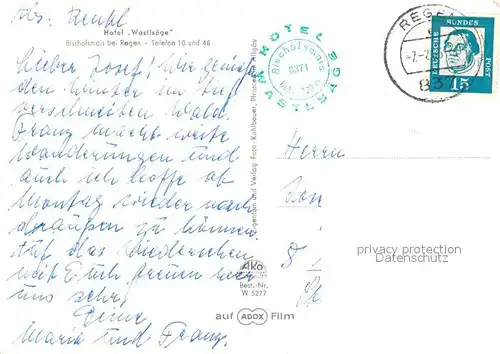 Hotel „Wastlsäge"
Bischofsmais bei Regen - Telefon 10 und 46
Lieber Josef! Wir genießen
den Winter im tief
verschneiten Wald.
Franz macht weite
Wanderungen und
auch ich hoffe ab
Montag wieder nach
draußen zu können.
Auf das Wiedersehen
mit Euch freuen wir
uns sehr!
Deine
Maria und Franz.
HOTEL
Bischofsmais
8371
WASTLSÄGE
Eigentum und Verlag Foto-Kohlbauer, Pfronten
AKO
Best.-Nr.
W 5277
auf ADOX Film
REGEN
DEUTSCHE BUNDESPOST
15
Herrn
privacy protection
Datenschutz